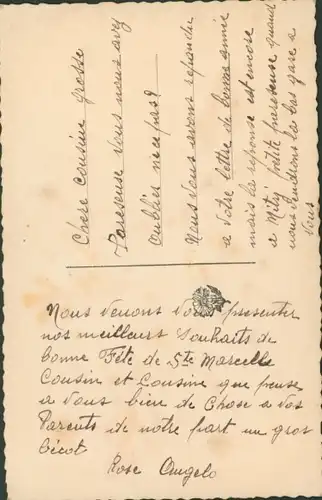 Chere cousine grosse
Pareseuse vous nous avez
oubliés nicepas?
Nous vous avons répondue
a votre lettre de bonne année
mais la reponse est encore
a Mitry petite pareseuse quand
nous viendrions la bas gase a
vous
Nous venons vous presenter
nos meilleurs souhaits de
bonne Fête de Ste Marcelle
Cousin et Cousine que pense
a vous bien de Chose a vos
Parents de notre part un gros
bécot
Rose Angelo